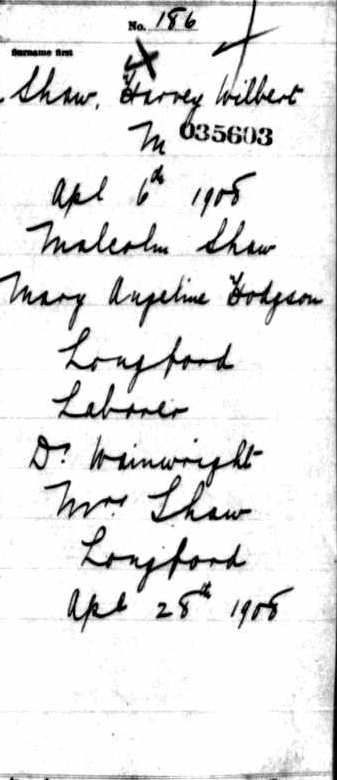 No. 186
Surname first
Shaw, Harvey Wilbert
M 035603
Apl 6th 1908
Malcolm Shaw
Mary Angeline Hodgson
Longford
Laborer
Dr Wainwright
Mrs Shaw
Longford
Apl 28th 1908